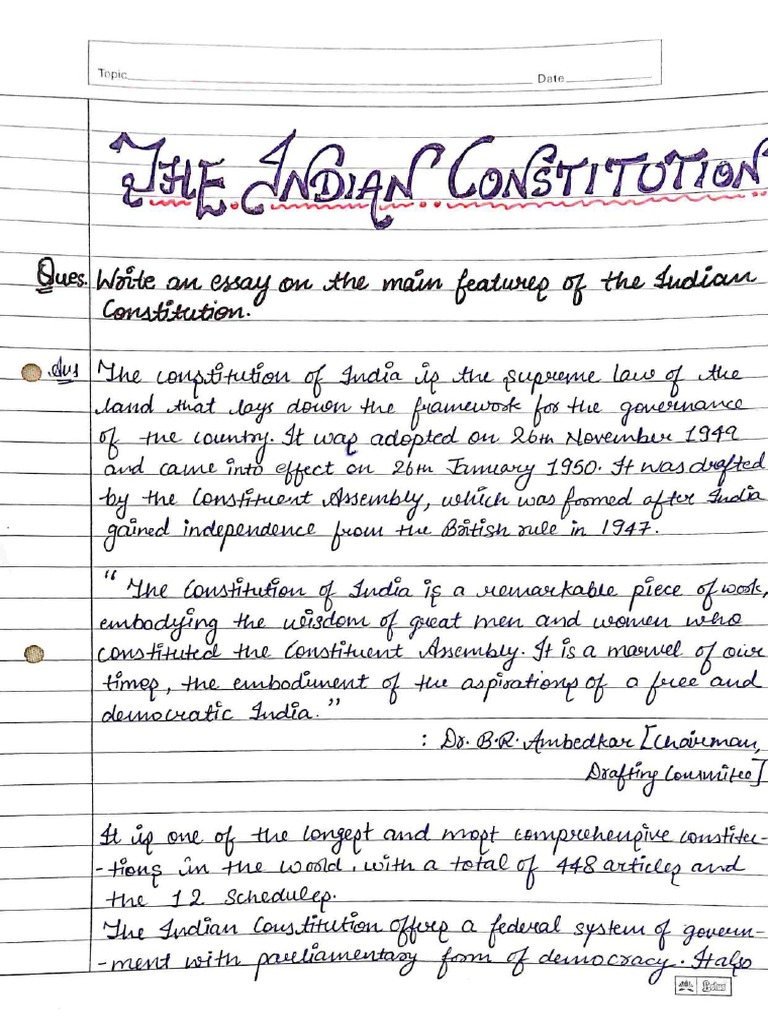 Topic Date
THE INDIAN CONSTITUTION
Ques. Write an essay on the main features of the Indian
Constitution.
Ans The constitution of India is the supreme law of the
land that lays down the framework for the governance
of the country. It was adopted on 26th November 1949
and came into effect on 26th January 1950. It was drafted
by the Constituent Assembly, which was formed after India
gained independence from the British rule in 1947.
"The Constitution of India is a remarkable piece of work,
embodying the wisdom of great men and women who
constituted the Constituent Assembly. It is a marvel of our
times, the embodiment of the aspirations of a free and
democratic India."
: Dr. B.R. Ambedkar [Chairman,
Drafting Committee]
It is one of the longest and most comprehensive constitu-
-tions in the world, with a total of 448 articles and
the 12 schedules.
The Indian Constitution offers a federal system of govern-
-ment with parliamentary form of democracy. It also